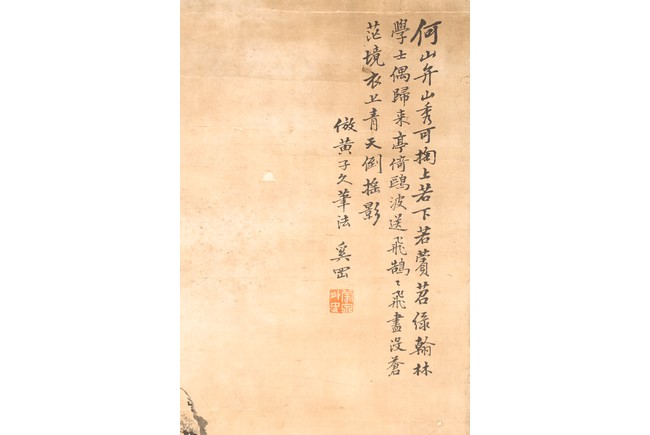 何山弁山秀可掬上若下若蕒苕綠翰林
學士偶歸来亭倚鷗波送飛鵠〻飛盡没蒼
茫境衣上青天倒摇影
倣黄子久筆法 奚岡